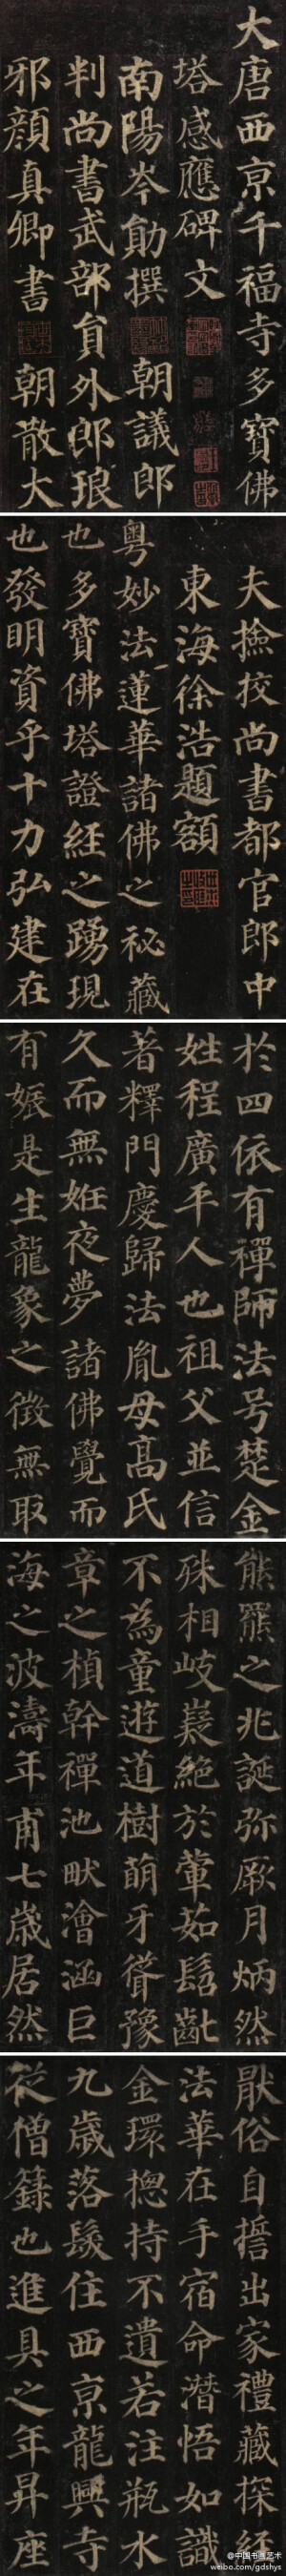 大唐西京千福寺多寶佛
塔感應碑文
南陽岑勛撰朝議郎
判尚書武部員外郎琅
邪顏真卿書朝散大
夫撿挍尚書都官郎中
東海徐浩題額
粵妙法蓮華諸佛之祕藏
也多寶佛塔證經之踴現
也發明資乎十力弘建在
於四依有禪師法号楚金
姓程廣平人也祖父並信
著釋門慶歸法胤母高氏
久而無姙夜夢諸佛覺而
有娠是生龍象之徵無取
熊羆之兆誕弥厥月炳然
殊相岐嶷絕於葷茹髫齓
不為童遊道樹萌牙聳豫
章之楨幹禪池畎澮涵巨
海之波濤年甫七歲居然
猒俗自誓出家禮藏探經
法華在手宿命潛悟如識
金環揔持不遺若注瓶水
九歲落髮住西京龍興寺
從僧籙也進具之年昇座
@中国书画艺术
weibo.com/gdshys